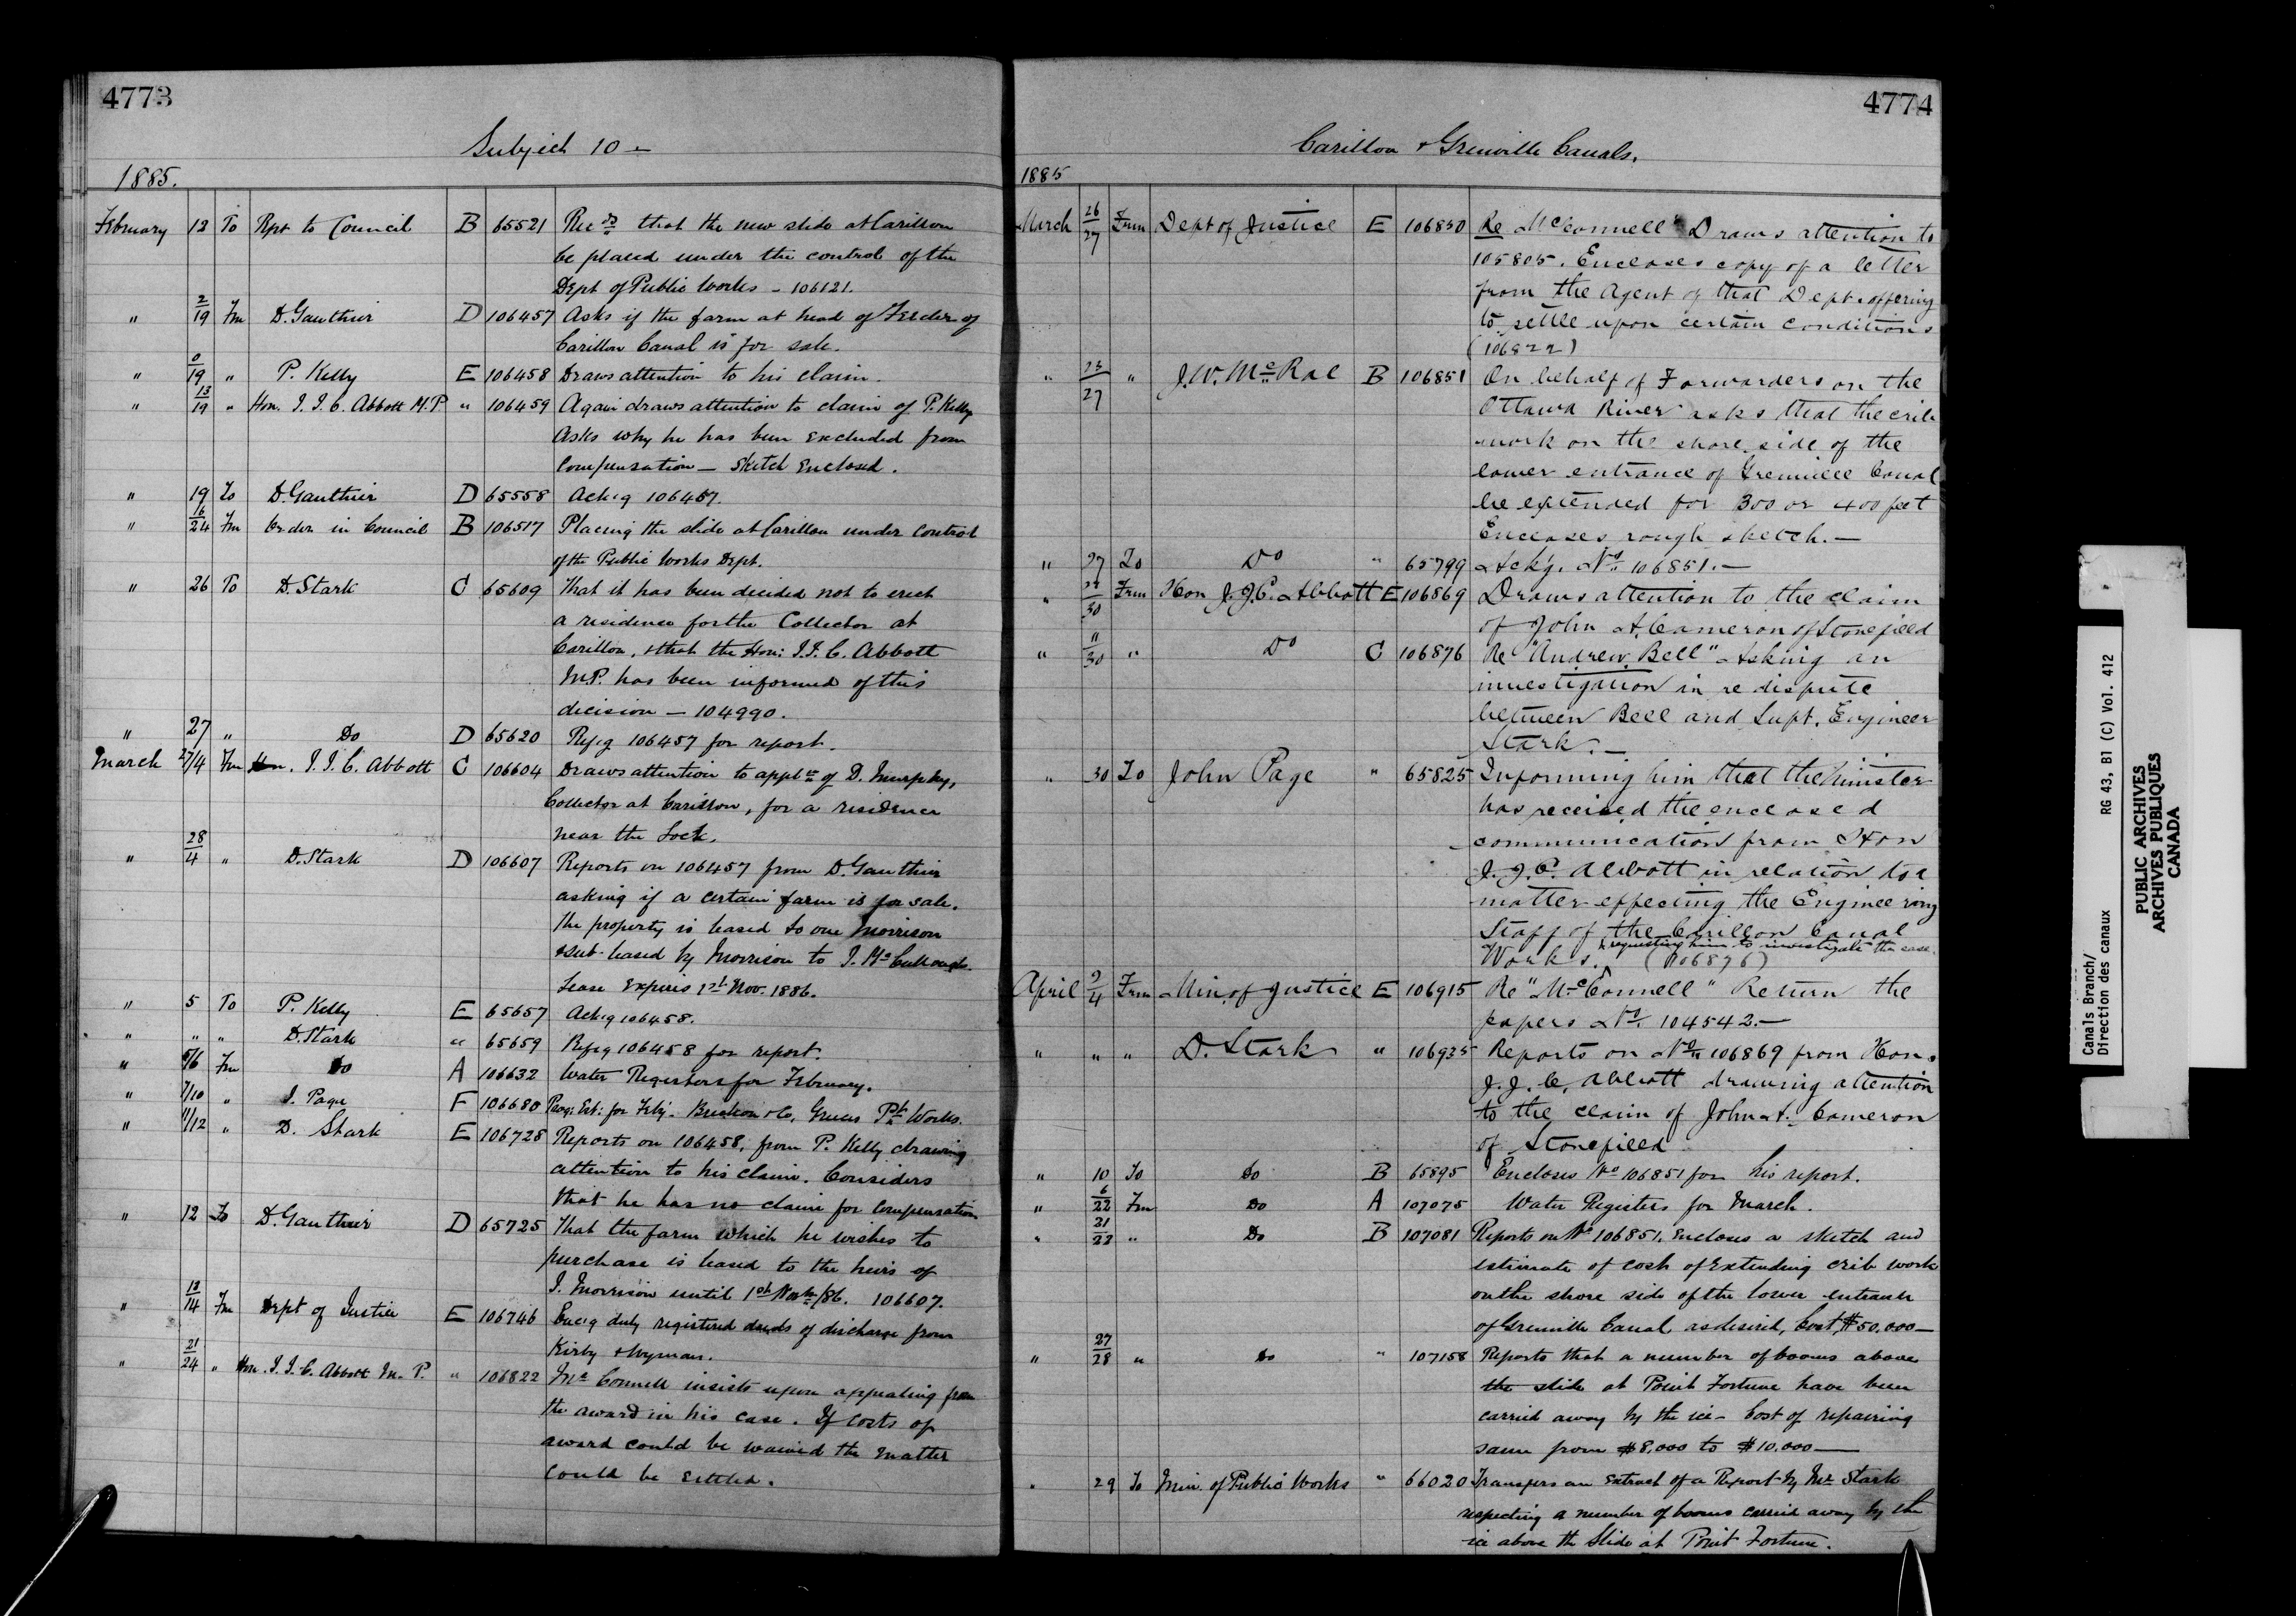 4773
Subject 10 —
1885.
February 13 To Rpt to Council B 65521 Recds that the new slide at Carillon
be placed under the control of the
Dept of Public Works - 106121.
" 2/19 Fm D. Gauthier D 106457 Asks if the farm at head of Feeder of
Carillon Canal is for sale.
" 9/19 " P. Kelly E 106458 Draws attention to his claim.
" 13/19 " Hon. J. J. C. Abbott M.P. " 106459 Again draws attention to claim of P. Kelly
Asks why he has been excluded from
Compensation — Sketch Enclosed.
" 19 To D. Gauthier D 65558 Ackg 106457.
" 16/24 Fm Order in Council B 106517 Placing the slide at Carillon under control
of the Public Works Dept.
" 26 To D. Stark C 65609 That it has been decided not to erect
a residence for the Collector at
Carillon, & that the Hon: J. J. C. Abbott
M.P. has been informed of this
decision — 104990.
" 27 " Do D 65620 Refg 106457 for report.
March 27/4 Fm Hon. J. J. C. Abbott C 106604 Draws attention to appln of D. Murphy,
Collector at Carillon, for a residence
near the Lock.
" 28/4 " D. Stark D 106607 Reports on 106457 from D. Gauthier
asking if a certain farm is for sale.
The property is leased to one Morrison
& sub-leased by Morrison to J. McCullough.
Lease Expires 1st Nov. 1886.
" 5 To P. Kelly E 65657 Ackg 106458.
" " " D. Stark " 65659 Refg 106458 for report.
" 5/6 Fm Do A 106632 Water Registers for February.
" 7/10 " J. Page F 106680 Prog: Est: for Feby. & Co, Works.
" 11/12 " D. Stark E 106725 Reports on 106458, from P. Kelly drawing
attention to his claim. Considers
that he has no claim for Compensation
" 12 To D. Gauthier D 65725 That the farm which he wishes to
purchase is leased to the heirs of
J. Morrison until 1st Novbr/86. 106607.
" 13/14 Fm Dept of Justice E 106746 Encg duly registered deeds of discharge from
Kirby & Wyman.
" 21/24 " Hon. J. J. C. Abbott M. P. " 106822 McConnell insists upon appealing from
the award in his case. If costs of
award could be waived the matter
could be settled.
4774
Carillon & Grenville Canals.
1885
March 26/27 From Dept of Justice E 106850 Re McConnell" Draws attention to
105805. Encloses copy of a letter
from the Agent of that Dept. offering
to settle upon certain conditions
(106822)
" 23/27 " J. W. McRae B 106851 On behalf of Forwarders on the
Ottawa River asks that the crib
work on the shore side of the
lower entrance of Grenville Canal
be extended for 300 or 400 feet
Encloses rough sketch. —
" 27 To Do " 65799 Ackg. No. 106851. —
" 28/30 From Hon J. J. C. Abbott E 106869 Draws attention to the claim
of John A. Cameron of Stonefield
" "/30 " Do C 106876 Re "Andrew Bell" Asking an
investigation in re dispute
between Bell and Supt. Engineer
Stark. —
" 30 To John Page " 65825 Informing him that the Minister
has received the enclosed
communication from Hon
J. J. C. Abbott in relation to a
matter effecting the Engineering
Staff of the Carillon Canal
& requesting him to investigate the case.
Works. (106876)
April 2/4 From Min. of Justice E 106915 Re "McConnell" Return the
papers No. 104542. —
" " " D. Stark " 106935 Reports on No. 106869 from Hon.
J. J. C. Abbott drawing attention
to the claim of John A. Cameron
of Stonefield
" 10 To Do B 65895 Encloses No 106851 for his report.
" 6/22 Fm Do A 107075 Water Registers for March.
" 21/22 " Do B 107081 Reports on No 106851. Encloses a sketch and
estimate of cost of Extending crib work
on the shore side of the lower entrance
of Grenville Canal as desired, Cost, $50,000 —
" 27/28 " Do " 107158 Reports that a number of booms above
the slide at Point Fortune have been
carried away by the ice - Cost of repairing
same from $8,000 to $10,000 —
" 29 To Min. of Public Works " 66020 Transfers an Extract of a Report by Mr. Stark
respecting a number of booms carried away by the
ice above the Slide at Point Fortune.
Canals Branch/
Direction des canaux RG 43, B1 (C) Vol. 412
PUBLIC ARCHIVES
ARCHIVES PUBLIQUES
CANADA